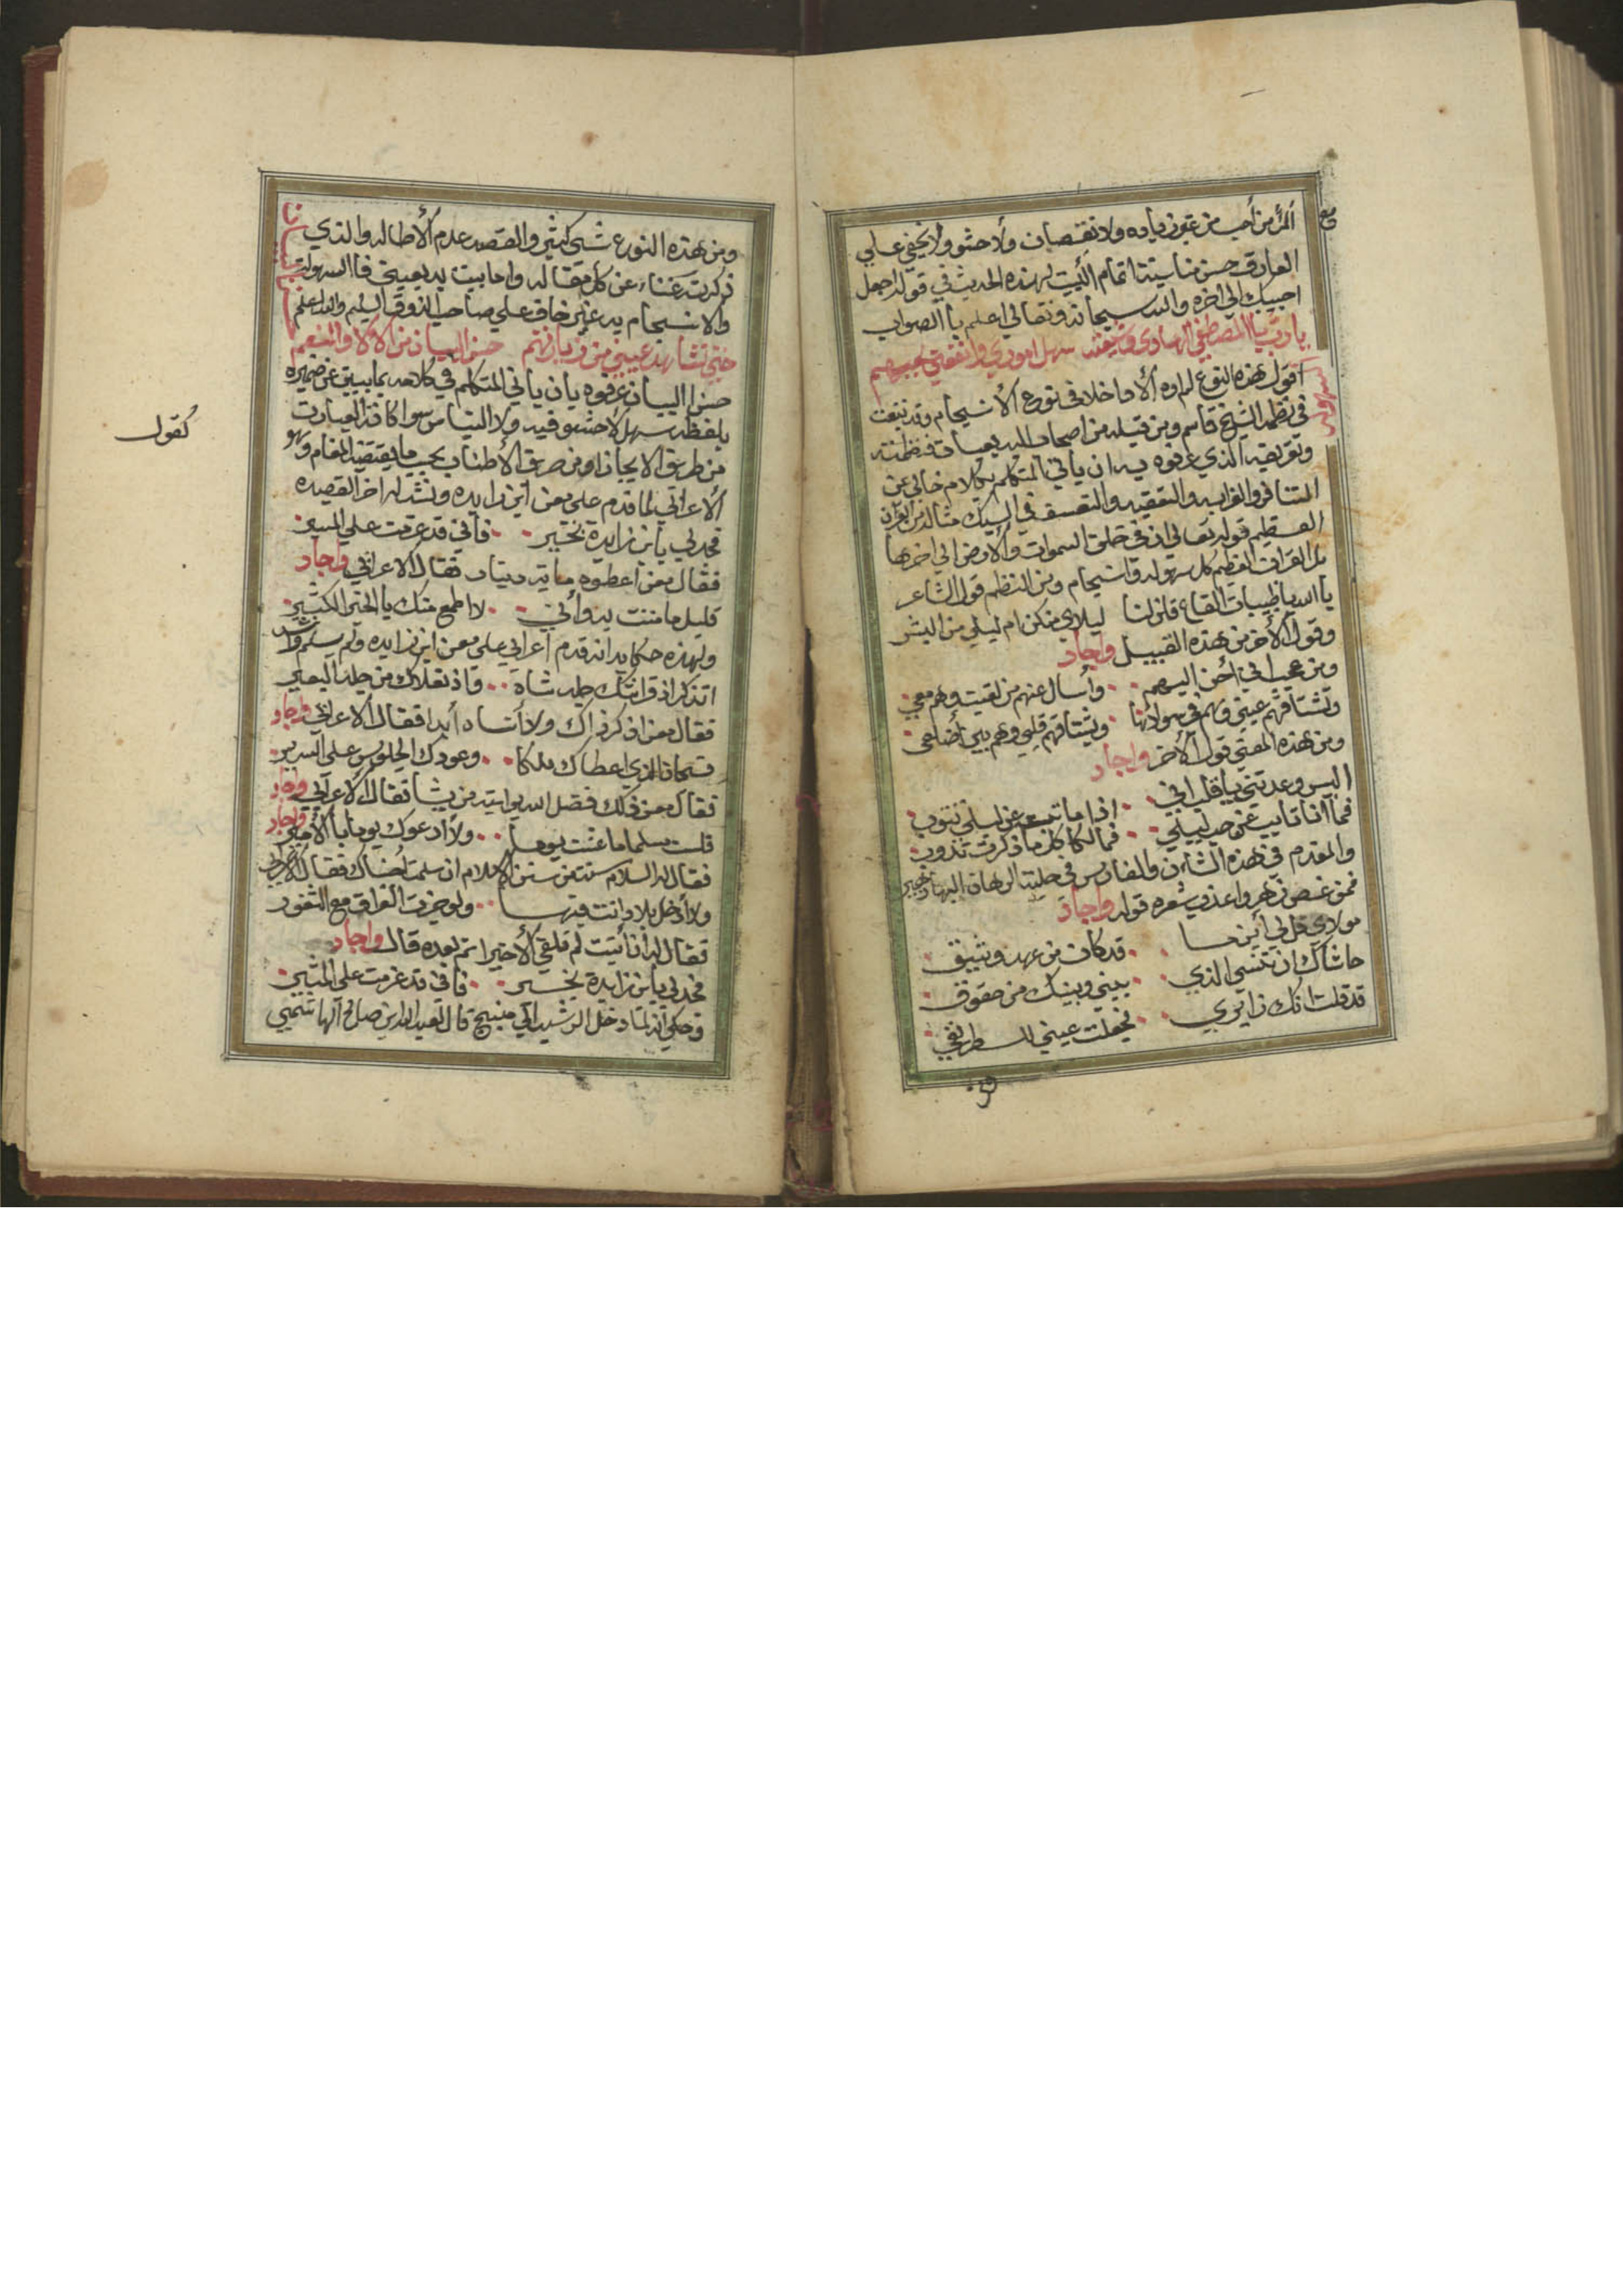 مع
المرء من أحب من غير زياده ولا نقصان ولا حشو ولا يخفي علي
العارف حسن مناسبة اتمام البيت لهذه الحديث في قوله اجعل
احيبك الي اخره والله سبحانه وتعالي اعلم باالصواب
يارب باالمصطفي الهادي وشيعته سهل اموري وانفعني بحبهم
السهوله
أقول هذه النوع لم اره ألا داخلا في نوع الأنسجام وقد تبعت
في نظمه الشيخ قاسم ومن قبله من اصحاب البديعيات فنظمته
وتعريفه الذي عرفوه به ان يأتي المتكلم بكلام خالي عن
التنافر والغرابه والتعقيد والتعسف في السبك مثاله من القرآن
العظيم قوله تعالي ان في خلق السموات والأرض الي اخرها
بل القرآن العظيم كل سهوله وانسجام ومن النظم قول الشاعر
ياالله ياظبيات القاع قلن لنا ليلاي منكن ام ليلي من البشر
وقول الأخر من هذه القبيل واجاد
ومن عجب اني أحن اليهم وأسال عنهم من لقيت وهم معي
وتشتاقهم عيني وهم في سوادها ويشتاقهم قلبي وهم بين أضلعي
ومن هذه المعني قول الأخر واجاد
اليس وعدتني ياقلب اني اذا ماتبت عن ليلي تتوب
فما انا تايب عن حب ليلي فمالك كلما ذكرت تذوب
والمقدم في هذه الشأن والفارس في حلبة الرهان البهاء زهير
فمن غصن زهر واعذب شعره قوله واجاد
مولاي قل لي أين ما قد كان من عهد وثيق
حاشاك ان تنسي الذي بيني وبينك من حقوق
قد قلت انك زايري فجعلت عيني للطريق
ومن
ومن هذه النوع شي كثير والقصد عدم ألأطاله والذي
ذكرت غناء عن كل مقاله واما بيت بديعيتي فاالسهولة
والانسجام به غير خاف علي صاحب الذوق السليم والله اعلم
حتي تشاهد عيني من زيارتهم حسن البيان من الآلاء والنعم
حسن البيان عرفوه بان ياتي المتكلم في كلامه بما يبين عن ضميره
بلفظ سهل لا حشو فيه ولا التباس سوا كانة العبارت
من طريق الايجاز او من طريق الأطناب بحسب ما يقتضيه المقام وهو
كقول
ألاعرابي لما قدم علي معن ابن زايده ونشد له اخر القصيده
فجد لي يابن زايدة بخير فأني قد عزمت علي المسير
فقال معن اعطوه مايه دينار فقال الاعرابي واجاد
قليل ما مننت به وأني لا اطمع منك ياالخير الكثير
ولهذه حكايه انه قدم اعرابي علي معن ابن زايده ولم يسلم وانشد
اتذكر اذ قميصك جلد شاة واذ نعلاك من جلد البعير
فقال معن اذكر ذاك ولا أنساه أبدا فقال ألاعرابي واجاد
فسبحان الذي اعطاك ملكا وعودك الجلوس علي السرير
فقال معن ذلك فضل الله يوايته من يشا فقال ألاعرابي واجاد
فلست مسلما ماعشت يوما ولا أدعوك يوما باالأمير
فقال له السلام سنت من سنن الاسلام ان سلمت أخذناك فقال الاعرابي
ولا أدخل بلاد انت فيها ولو حزت العراق مع الثغور
فقال له ان أتيت لم تلقي ألاخيرا ثم بعده قال واجاد
فجد لي يابن زايدة بخير فأني قد عزمت علي المسير
وحكي أنه لما دخل الرشيد الي منبج قال لعبد الملك بن صالح الهاشمي